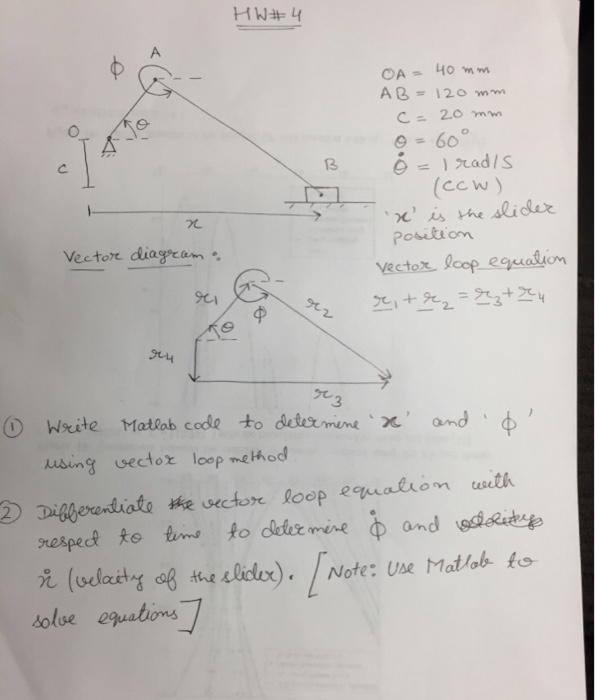 HW# 4
A
ϕ
θ
O
C
B
x
OA = 40 mm
AB = 120 mm
C = 20 mm
θ = 60°
θ̇ = 1 rad/s
(CCW)
'x' is the slider
position
Vector diagram :
r1
r2
θ
ϕ
r4
r3
Vector loop equation
r1 + r2 = r3 + r4
① Write Matlab code to determine 'x' and 'ϕ'
using vector loop method
② Differentiate the vector loop equation with
respect to time to determine ϕ̇ and
ẋ (velocity of the slider). [Note: Use Matlab to
solve equations]